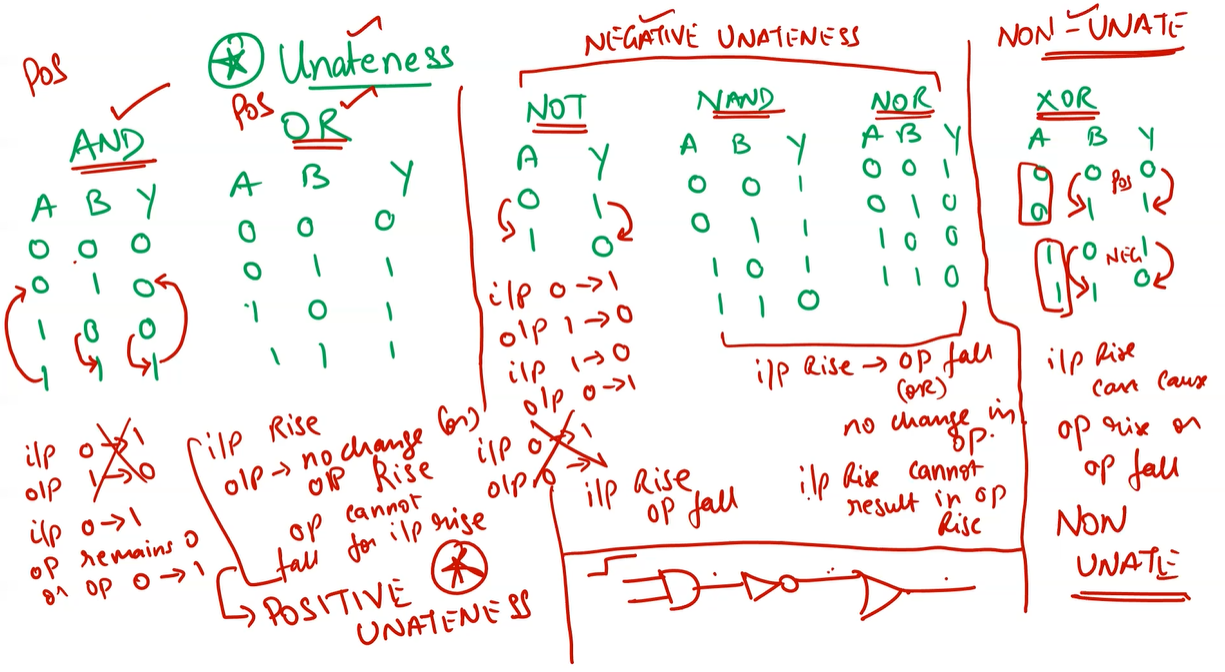 POS
Unateness
POS
AND
A B Y
0 0 0
0 1 0
1 0 0
1 1 1
i/p 0→1
o/p 1→0
i/p 0→1
op remains 0
or op 0→1
OR
A B Y
0 0 0
0 1 1
1 0 1
1 1 1
i/p Rise
o/p → no change (or)
o/p Rise
op cannot
fall for i/p rise
POSITIVE
UNATENESS
NEGATIVE UNATENESS
NOT
A Y
0 1
1 0
i/p 0→1
o/p 1→0
i/p 1→0
o/p 0→1
i/p 0→1
o/p 0→
i/p Rise
op fall
NAND
A B Y
0 0 1
0 1 1
1 0 1
1 1 0
NOR
A B Y
0 0 1
0 1 0
1 0 0
1 1 0
i/p Rise → op fall
(OR)
no change in
op.
i/p Rise cannot
result in op
Rise
NON-UNATE
XOR
A B Y
0 0 POS 0
0 1 1
1 0 NEG 1
1 1 0
i/p Rise
can cause
op rise or
op fall
NON
UNATE